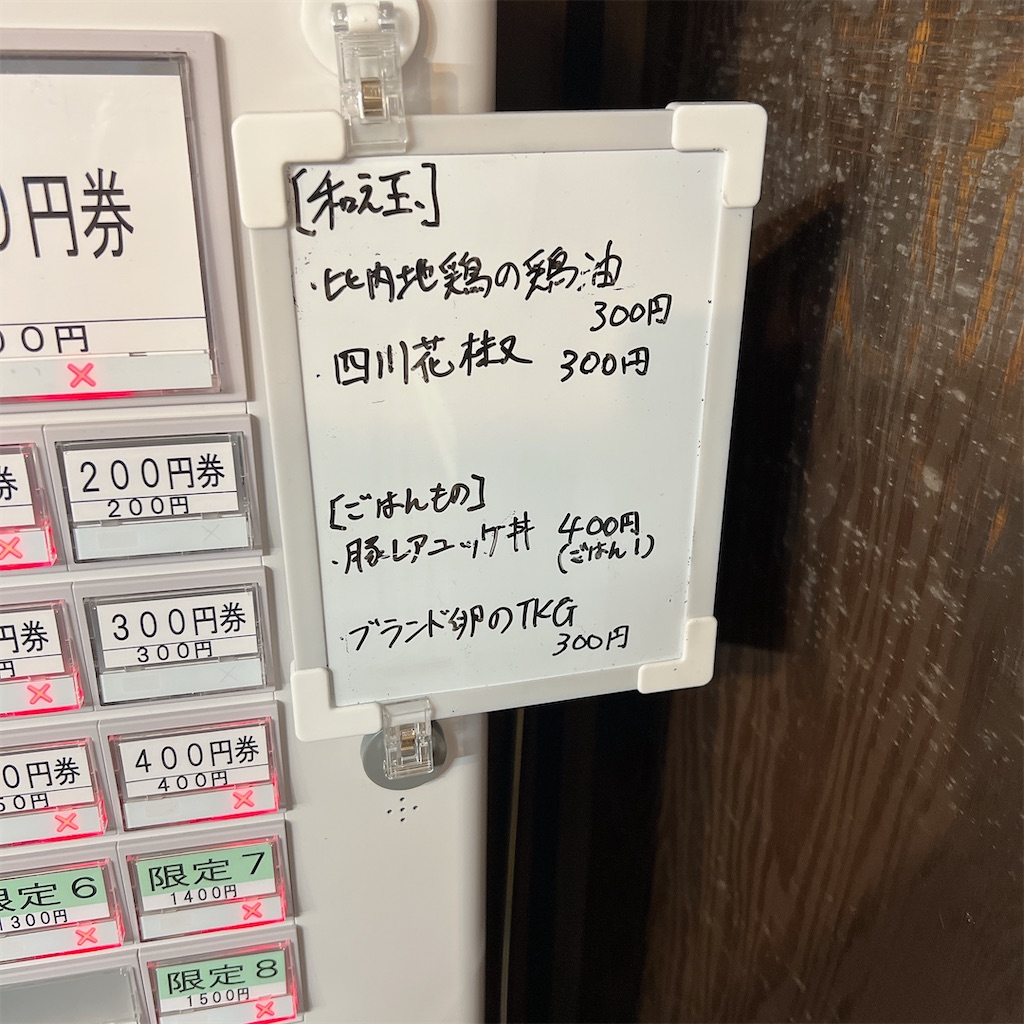 [和え玉]
・比内地鶏の鶏油
300円
・四川花椒 300円
[ごはんもの]
・豚レアユッケ丼 400円
(ごはん1)
・ブランド卵のTKG
300円
0円券
00円
×
券
×
200円券
200円
円券
円
×
300円券
300円
0円券
50円
×
400円券
400円
×
限定6
1300円
×
限定7
1400円
×
限定8
1500円
×